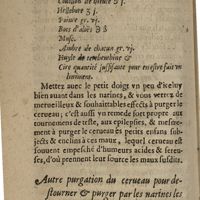 Hellebore ʒ j.
Poivre gr. vj.
Bois d'aloës ℈ ß
Musc.
Ambre de chacun gr. vj.
Huyle de terebenthine &
Cire quantité suffisante pour en estre fait vn
liniment.
Mettez auec le petit doigt vn peu d'iceluy
bien auant dans les narines, & vous verrez de
merueilleux & souhaittables effects à purger le
cerueau; c'est aussi vn remede fort propre aux
tournemens de teste, aux epilepsies, & mesme-
ment à purger le cerueau és petits enfans sub-
jects & enclins à ces maux, lequel cerueau est
souuent empesché d'humeurs acides & sereu-
ses, d'où prennent leur source les maux susdits.
Autre purgation du cerueau pour de-
stourner & purger par les narines les